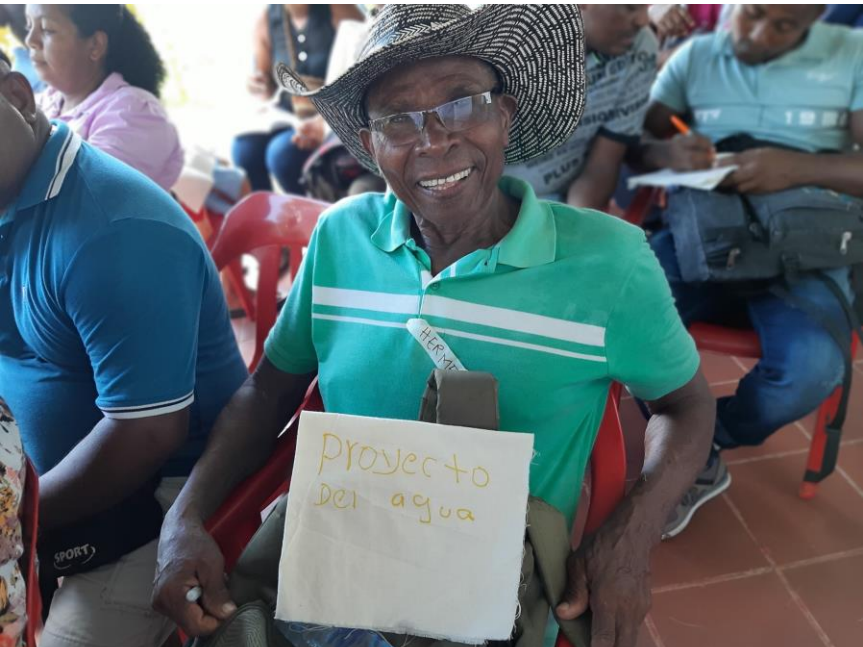 HERME
Proyecto
Del agua
SPORT
PLUS